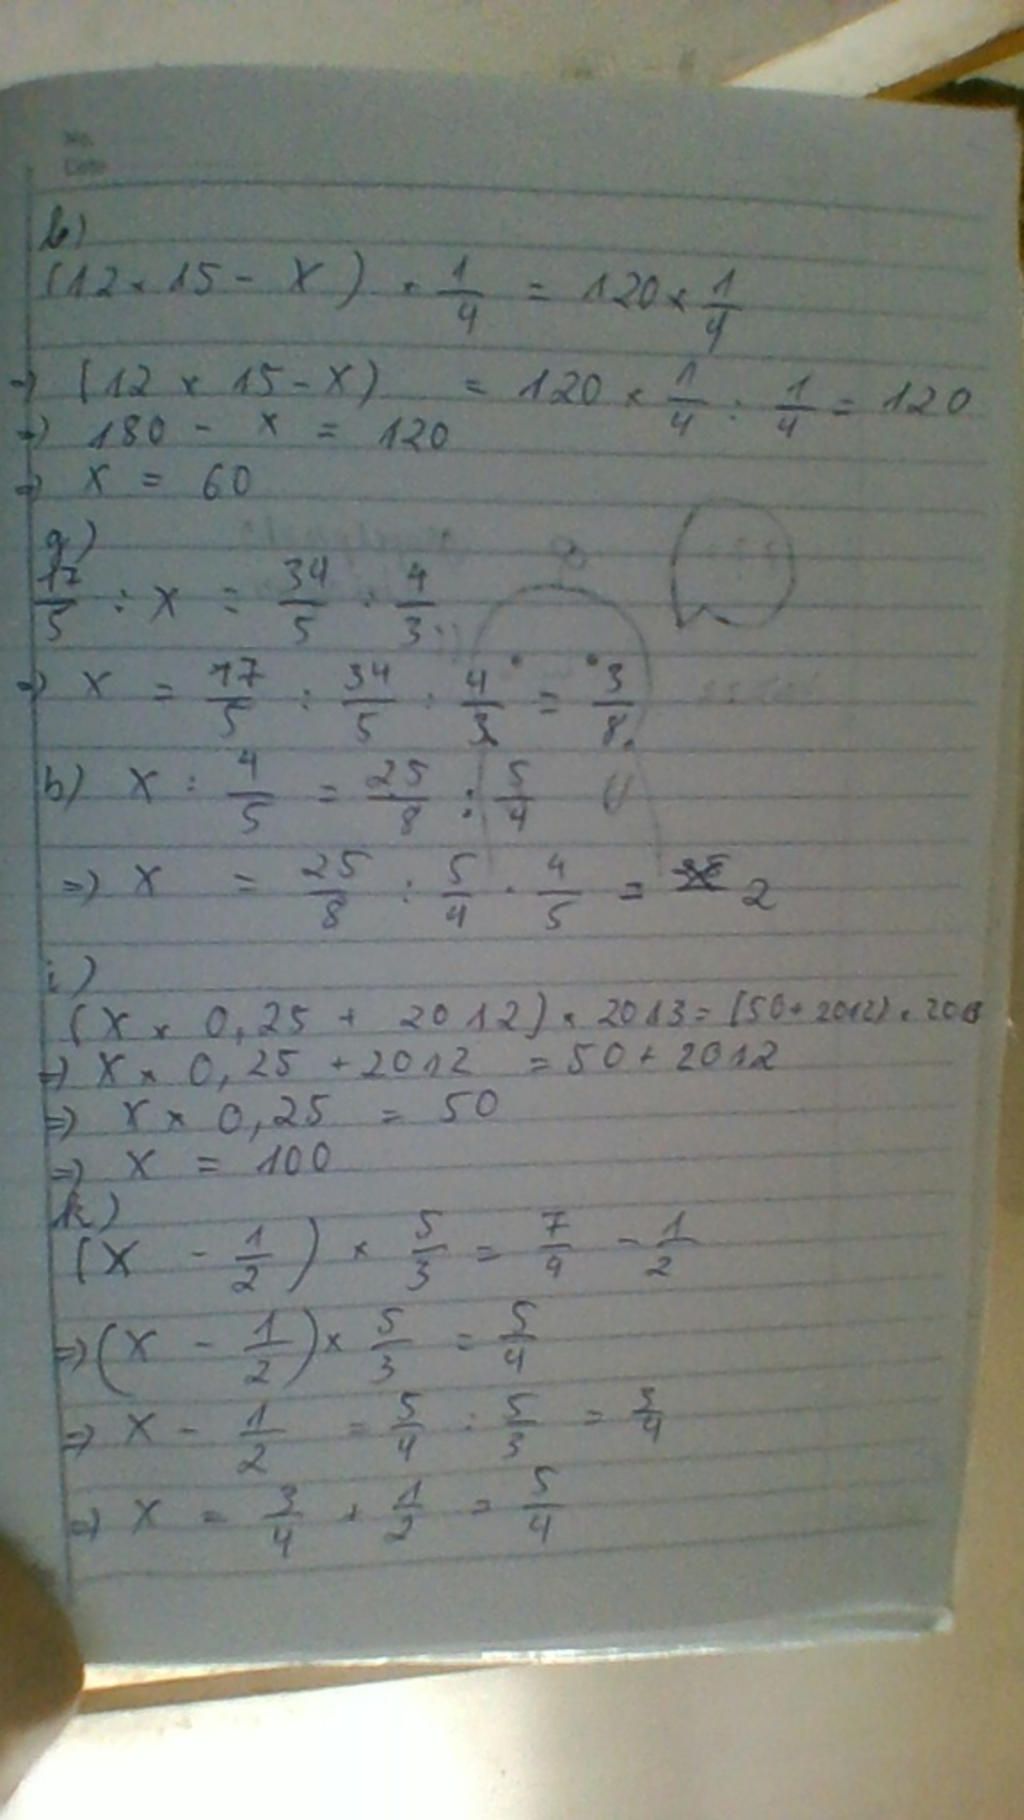 No.
Date
b)
(12 × 15 - X) × 1/4 = 120 × 1/4
=> (12 × 15 - X) = 120 × 1/4 : 1/4 = 120
=> 180 - x = 120
=> x = 60
g)
17/5 : x = 34/5 : 4/3
=> x = 17/5 : 34/5 · 4/3 = 3/8
h) x : 4/5 = 25/8 : 5/4
=> x = 25/8 : 5/4 · 4/5 = 2
i)
(X × 0,25 + 2012) × 2013 = (50 + 2012) × 2013
=> X × 0,25 + 2012 = 50 + 2012
=> X × 0,25 = 50
=> X = 100
k)
(X - 1/2) × 5/3 = 7/4 - 1/2
=> (X - 1/2) × 5/3 = 5/4
=> X - 1/2 = 5/4 : 5/3 = 3/4
=> X = 3/4 + 1/2 = 5/4